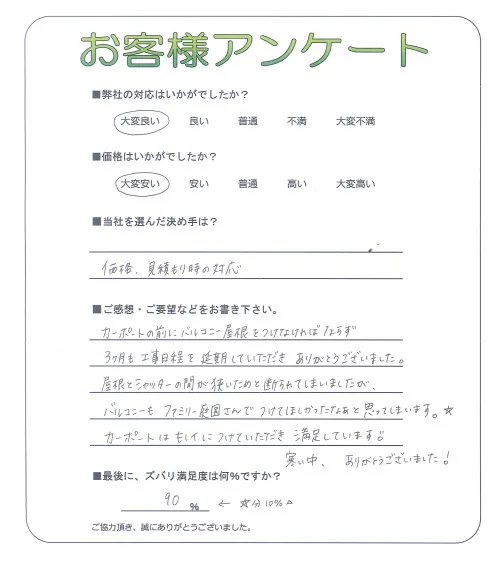 お客様アンケート
■弊社の対応はいかがでしたか？
大変良い 良い 普通 不満 大変不満
■価格はいかがでしたか？
大変安い 安い 普通 高い 大変高い
■当社を選んだ決め手は？
価格、見積もり時の対応
■ご感想・ご要望などをお書き下さい。
カーポートの前にバルコニー屋根をつけなければならず
3ヶ月も工事日程を延期していただきありがとうございました。
屋根とシャッターの間が狭いためと断られてしまいましたが、
バルコニーもファミリー庭園さんでつけてほしかったなあと思ってしまいます。☆
カーポートはキレイにつけていただき満足しています!!
寒い中、ありがとうございました!
■最後に、ズバリ満足度は何%ですか？
90 % ← ☆分10%△
ご協力頂き、誠にありがとうございました。